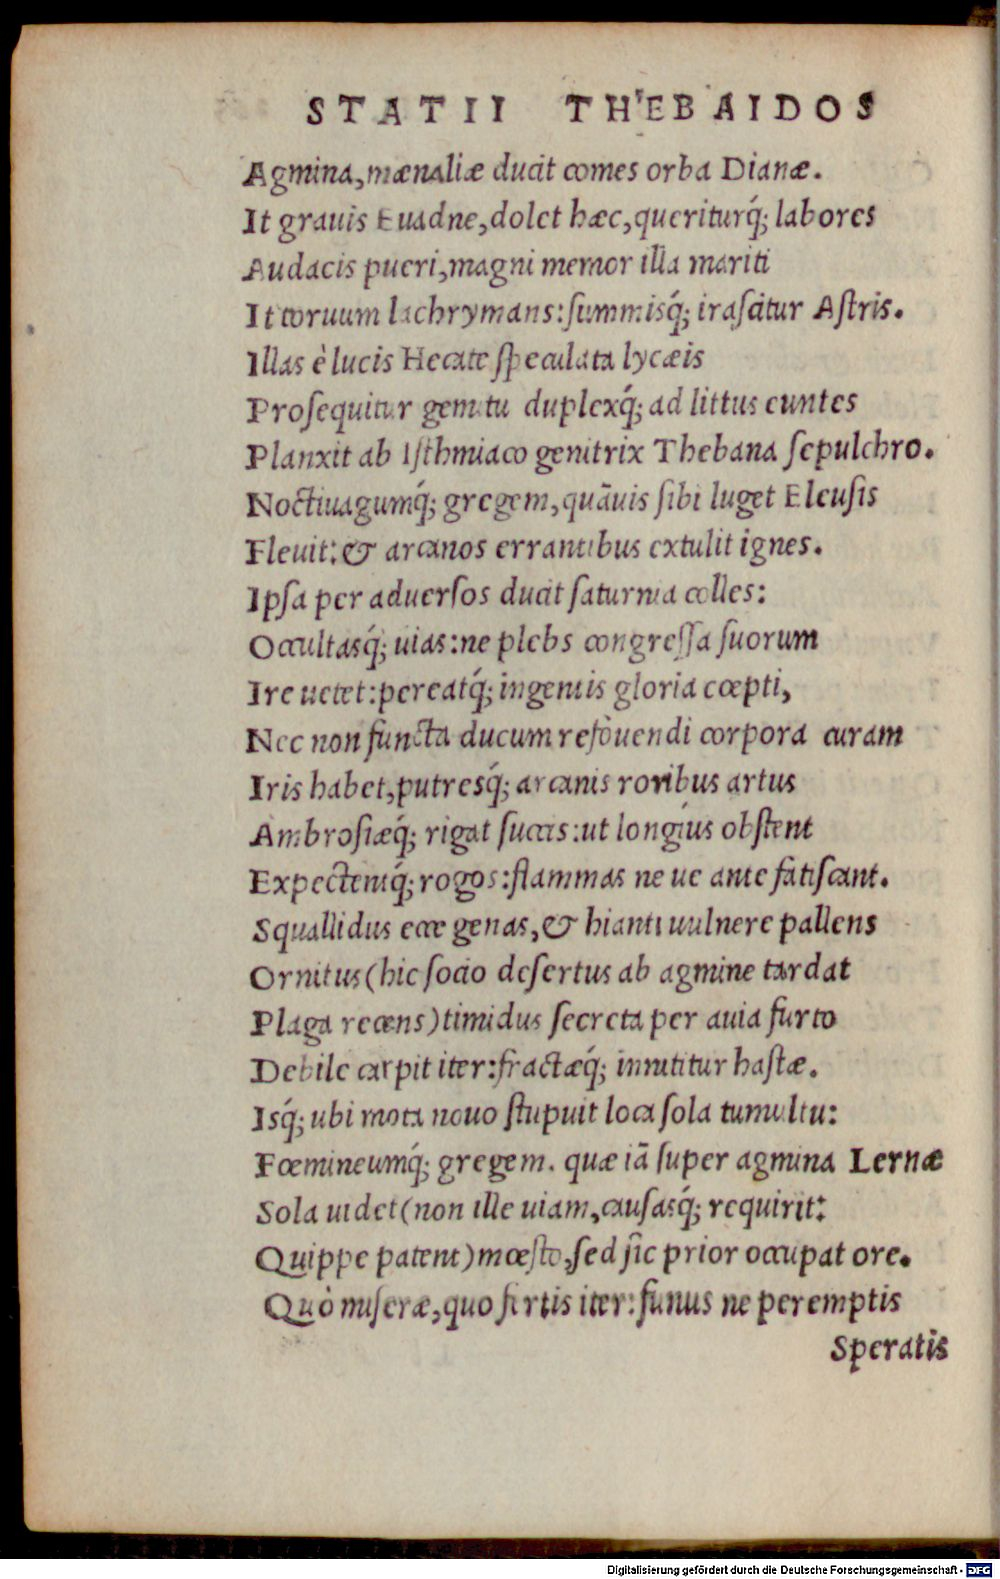 STATII THEBAIDOS
Agmina, mænaliæ ducit comes orba Dianæ.
It grauis Euadne, dolet hæc, queriturq́; labores
Audacis pueri, magni memor illa mariti
It toruum lachrymans: summisq́; irascitur Astris.
Illas è lucis Hecate speculata lycæis
Prosequitur gemitu duplexq́; ad littus euntes
Planxit ab Isthmiaco genitrix Thebana sepulchro.
Noctiuagumq́; gregem, quāuis sibi luget Eleusis
Fleuit: & arcanos errantibus extulit ignes.
Ipsa per aduersos ducit saturnia colles:
Occultasq́; uias: ne plebs congressa suorum
Ire uetet: pereatq́; ingentis gloria cœpti,
Nec non functa ducum refouendi corpora curam
Iris habet, putresq́; arcanis roribus artus
Ambrosiæq́; rigat succis: ut longius obstent
Expectentq́; rogos: flammas ne ue ante fatiscant.
Squallidus ecce genas, & hianti uulnere pallens
Ornitus (hic socio desertus ab agmine tardat
Plaga recens) timidus secreta per auia furto
Debile carpit iter: fractæq́; innititur hastæ.
Isq́; ubi mota nouo stupuit loca sola tumultu:
Fœmineumq́; gregem. quæ iā super agmina Lernæ
Sola uidet (non ille uiam, causasq́; requirit:
Quippe patent) mœsto, sed sic prior occupat ore.
Quò miseræ, quo fertis iter: funus ne peremptis
Speratis
Digitalisierung gefördert durch die Deutsche Forschungsgemeinschaft - DFG